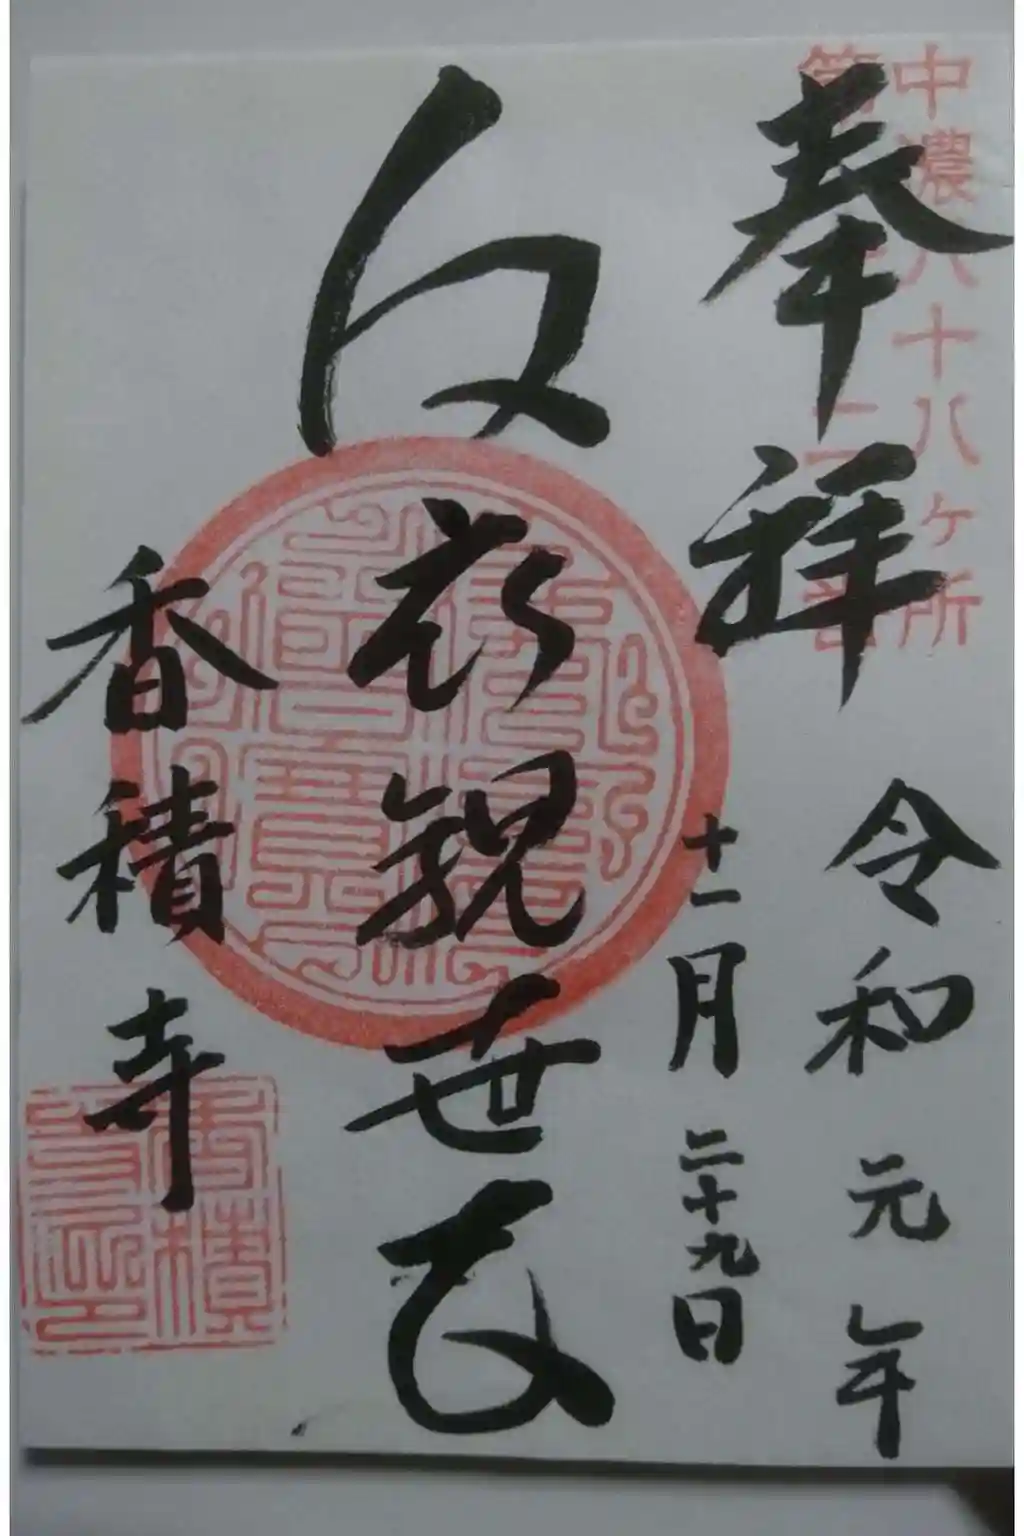 中濃八十八ヶ所
奉拝
令和元年
十一月二十九日
白衣観世音
香積寺
香積